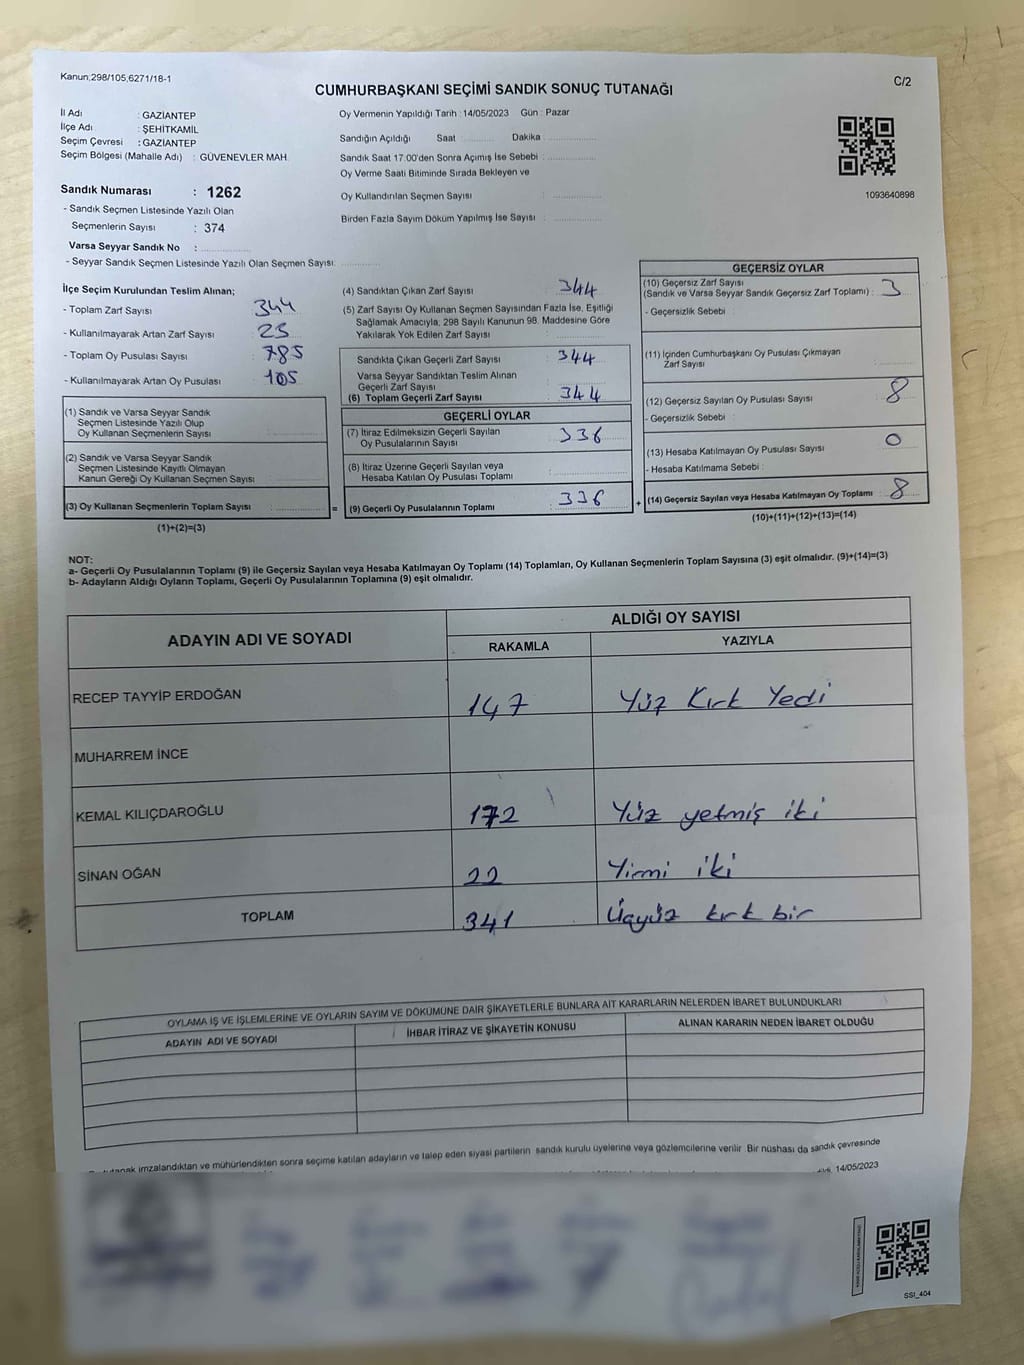 Kanun,298/105,6271/18-1
C/2
CUMHURBAŞKANI SEÇİMİ SANDIK SONUÇ TUTANAĞI
İl Adı : GAZİANTEP
İlçe Adı : ŞEHİTKAMİL
Seçim Çevresi : GAZİANTEP
Seçim Bölgesi (Mahalle Adı) : GÜVENEVLER MAH.
Sandık Numarası : 1262
- Sandık Seçmen Listesinde Yazılı Olan
Seçmenlerin Sayısı : 374
Varsa Seyyar Sandık No :
- Seyyar Sandık Seçmen Listesinde Yazılı Olan Seçmen Sayısı:
Oy Vermenin Yapıldığı Tarih : 14/05/2023 Gün : Pazar
Sandığın Açıldığı Saat Dakika
Sandık Saat 17.00'den Sonra Açımış İse Sebebi :
Oy Verme Saati Bitiminde Sırada Bekleyen ve
Oy Kullandırılan Seçmen Sayısı :
Birden Fazla Sayım Döküm Yapılmış İse Sayısı :
1093640898
İlçe Seçim Kurulundan Teslim Alınan;
- Toplam Zarf Sayısı : 344
- Kullanılmayarak Artan Zarf Sayısı : 23
- Toplam Oy Pusulası Sayısı : 785
- Kullanılmayarak Artan Oy Pusulası : 105
(1) Sandık ve Varsa Seyyar Sandık
Seçmen Listesinde Yazılı Olup
Oy Kullanan Seçmenlerin Sayısı :
(2) Sandık ve Varsa Seyyar Sandık
Seçmen Listesinde Kayıtlı Olmayan
Kanun Gereği Oy Kullanan Seçmen Sayısı :
(3) Oy Kullanan Seçmenlerin Toplam Sayısı :
(1)+(2)=(3)
(4) Sandıktan Çıkan Zarf Sayısı : 344
(5) Zarf Sayısı Oy Kullanan Seçmen Sayısından Fazla İse, Eşitliği
Sağlamak Amacıyla, 298 Sayılı Kanunun 98. Maddesine Göre
Yakılarak Yok Edilen Zarf Sayısı :
Sandıkta Çıkan Geçerli Zarf Sayısı : 344
Varsa Seyyar Sandıktan Teslim Alınan
Geçerli Zarf Sayısı
(6) Toplam Geçerli Zarf Sayısı : 344
GEÇERLİ OYLAR
(7) İtiraz Edilmeksizin Geçerli Sayılan
Oy Pusulalarının Sayısı : 336
(8) İtiraz Üzerine Geçerli Sayılan veya
Hesaba Katılan Oy Pusulası Toplamı :
= (9) Geçerli Oy Pusulalarının Toplamı : 336 +
GEÇERSİZ OYLAR
(10) Geçersiz Zarf Sayısı
(Sandık ve Varsa Seyyar Sandık Geçersiz Zarf Toplamı) : 3
- Geçersizlik Sebebi :
(11) İçinden Cumhurbaşkanı Oy Pusulası Çıkmayan
Zarf Sayısı :
(12) Geçersiz Sayılan Oy Pusulası Sayısı : 8
- Geçersizlik Sebebi :
(13) Hesaba Katılmayan Oy Pusulası Sayısı : 0
- Hesaba Katılmama Sebebi :
(14) Geçersiz Sayılan veya Hesaba Katılmayan Oy Toplamı : 8
(10)+(11)+(12)+(13)=(14)
NOT:
a- Geçerli Oy Pusulalarının Toplamı (9) ile Geçersiz Sayılan veya Hesaba Katılmayan Oy Toplamı (14) Toplamları, Oy Kullanan Seçmenlerin Toplam Sayısına (3) eşit olmalıdır. (9)+(14)=(3)
b- Adayların Aldığı Oyların Toplamı, Geçerli Oy Pusulalarının Toplamına (9) eşit olmalıdır.
ADAYIN ADI VE SOYADI
ALDIĞI OY SAYISI
RAKAMLA YAZIYLA
RECEP TAYYİP ERDOĞAN 147 Yüz Kırk Yedi
MUHARREM İNCE
KEMAL KILIÇDAROĞLU 172 Yüz yetmiş iki
SİNAN OĞAN 22 Yirmi iki
TOPLAM 341 Üçyüz kırk bir
OYLAMA İŞ VE İŞLEMLERİNE VE OYLARIN SAYIM VE DÖKÜMÜNE DAİR ŞİKAYETLERLE BUNLARA AİT KARARLARIN NELERDEN İBARET BULUNDUKLARI
ADAYIN ADI VE SOYADI İHBAR İTİRAZ VE ŞİKAYETİN KONUSU ALINAN KARARIN NEDEN İBARET OLDUĞU
imzalandıktan ve mühürlendikten sonra seçime katılan adayların ve talep eden siyasi partilerin sandık kurulu üyelerine veya gözlemcilerine verilir. Bir nüshası da sandık çevresinde
14/05/2023
SSI_404